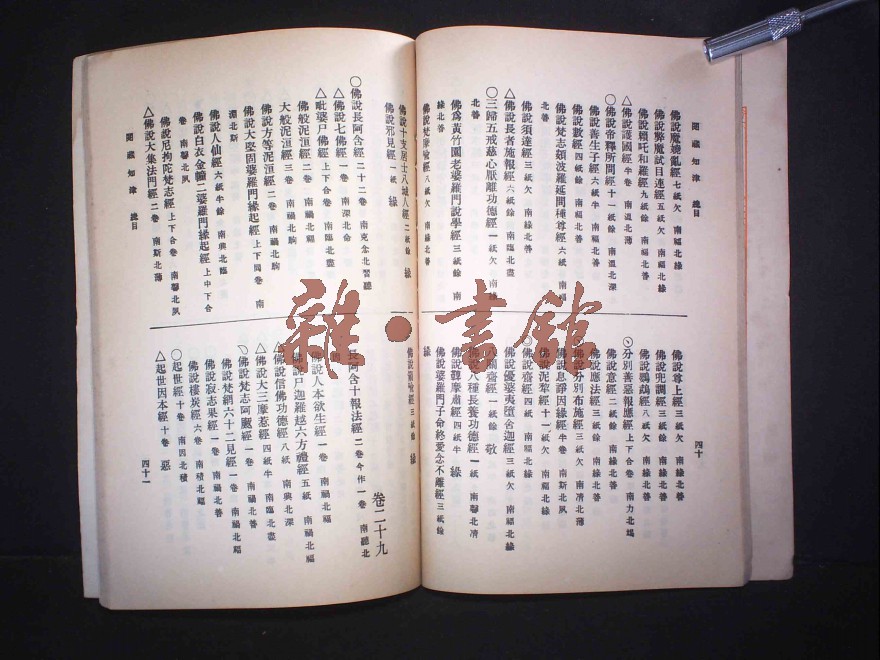 閱藏知津 總目 四十
佛說魔嬈亂經 七紙欠 南福北緣
佛說弊魔試目連經 五紙欠 南福北緣
佛說賴吒和羅經 九紙餘 南福北善
△佛說護國經 半卷 南溫北薄
○佛說帝釋所問經 十一紙餘 南溫北深
佛說善生子經 六紙半 南福北善
佛說數經 四紙餘 南福北善
佛說梵志頞波羅延問種尊經 六紙 南福
北善
佛說須達經 三紙欠 南緣北善
△佛說長者施報經 六紙餘 南臨北盡
○三歸五戒慈心厭離功德經 一紙欠 南緣
北善
佛爲黃竹園老婆羅門說學經 三紙餘 南
緣北善
佛說梵摩喩經 八紙欠 南緣北善
佛說尊上經 三紙欠 南緣北善
佛說兜調經 三紙餘 南緣北善
佛說鸚鵡經 八紙欠 南緣北善
分別善惡報應經 上下合卷 南力北竭
佛說意經 二紙餘 南緣北善
佛說應法經 三紙餘 南緣北善
佛說分別布施經 三紙欠 南清北薄
佛說息諍因緣經 半卷 南斯北夙
佛說泥犂經 十一紙欠 南福北緣
佛說齋經 四紙 南福北緣
佛說優婆夷墮舍迦經 三紙欠 南福北緣
八關齋經 一紙餘 敬
佛說八種長養功德經 一紙 南馨北清
佛說鞞摩肅經 四紙半 緣
佛說婆羅門子命終愛念不離經 三紙餘
緣
佛說十支居士八城人經 二紙餘 緣
佛說邪見經 一紙 緣
○佛說長阿含經 二十二卷 南克念北習聽
△佛說七佛經 一卷 南深北命
△毗婆尸佛經 上下合卷 南臨北盡
佛般泥洹經 二卷 南禍北福
大般泥洹經 三卷 南禍北駒
佛說方等泥洹經 二卷 南禍北駒
佛說大堅固婆羅門緣起經 上下同卷 南
淵北斯
佛說人仙經 六紙半餘 南興北臨
佛說白衣金幢二婆羅門緣起經 上中下合
卷 南馨北夙
佛說尼拘陀梵志經 上下合卷 南馨北夙
△佛說大集法門經 二卷 南斯北薄
閱藏知津 總目 四十一
佛說箭喩經 三紙餘 緣
卷二十九
長阿含十報法經 二卷今作一卷 南聽北
佛說人本欲生經 一卷 南禍北福
佛說尸迦羅越六方禮經 五紙 南禍北福
△佛說信佛功德經 八紙 南興北深
△佛說大三摩惹經 四紙半 南臨北盡
佛說梵志阿颰經 一卷 南禍北善
佛說梵網六十二見經 一卷 南禍北福
佛說寂志果經 一卷 南禍北善
佛說樓炭經 六卷 南積北福
○起世經 十卷 南因北積
△起世因本經 十卷 惡
雜·書館